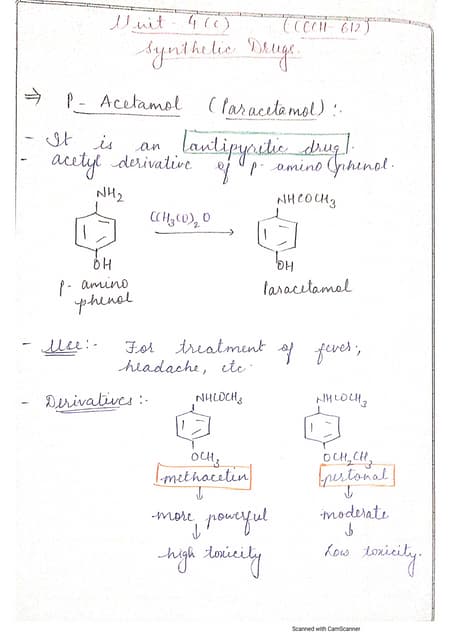 Unit - 4(c) (CCCH-612)
Synthetic Drugs.
⇒ P- Acetamol (Paracetamol) :.
- It is an antipyretic drug.
- acetyl derivative of p- amino phenol.
NH2 NHCOCH3
(CH3CO)2O
OH OH
p- amino phenol Paracetamol
- Use:- For treatment of fever,
headache, etc.
- Derivatives :-
NHCOCH3 NHCOCH3
OCH3 OCH2CH3
methacetin pertonal
more powerful moderate
high toxicity Low toxicity.
Scanned with CamScanner